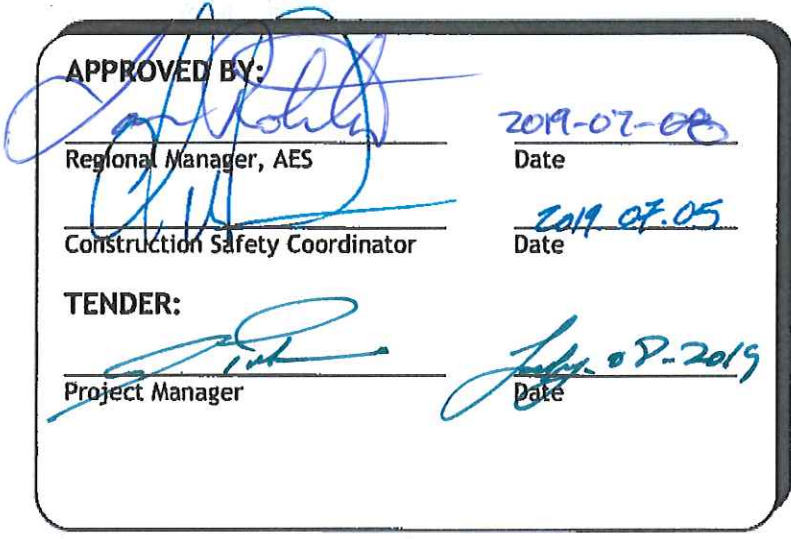 APPROVED BY:
2019-07-08
Regional Manager, AES Date
2019.07.05
Construction Safety Coordinator Date
TENDER:
July-08-2019
Project Manager Date